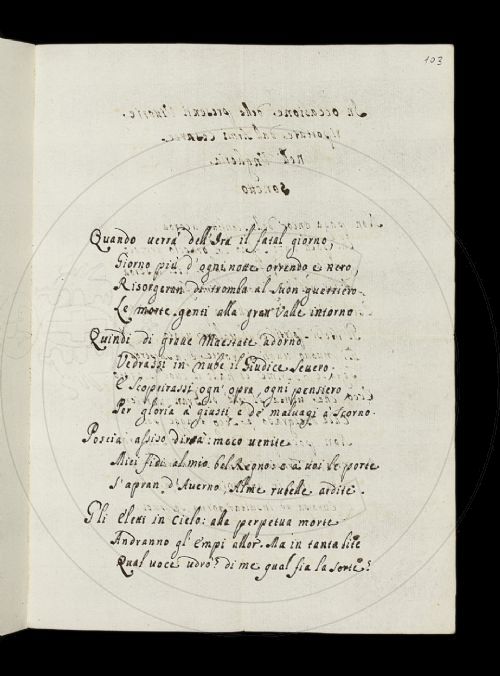 103
Quando verra dell'Ira il fatal giorno,
Giorno più d'ogni notte orrendo e nero,
Risorgeran di tromba al suon guerriero
Le morte genti alla gran Valle intorno
Quindi di grave Maestate adorno
Vedrassi in nube il Giudice severo.
E scoprirassi ogn'opra, ogni pensiero
Per gloria a' giusti e de' malvagi a scorno.
Poscia assiso dirà: meco venite
Miei fidi al mio bel Regno: e a voi le porte
S'apran d'Averno Alme rubelle ardite.
Gli Eletti in Cielo: alla perpetua morte
Andranno gl'Empi allor. Ma in tanta lite
Qual voce udro? di me qual fia la sorte?